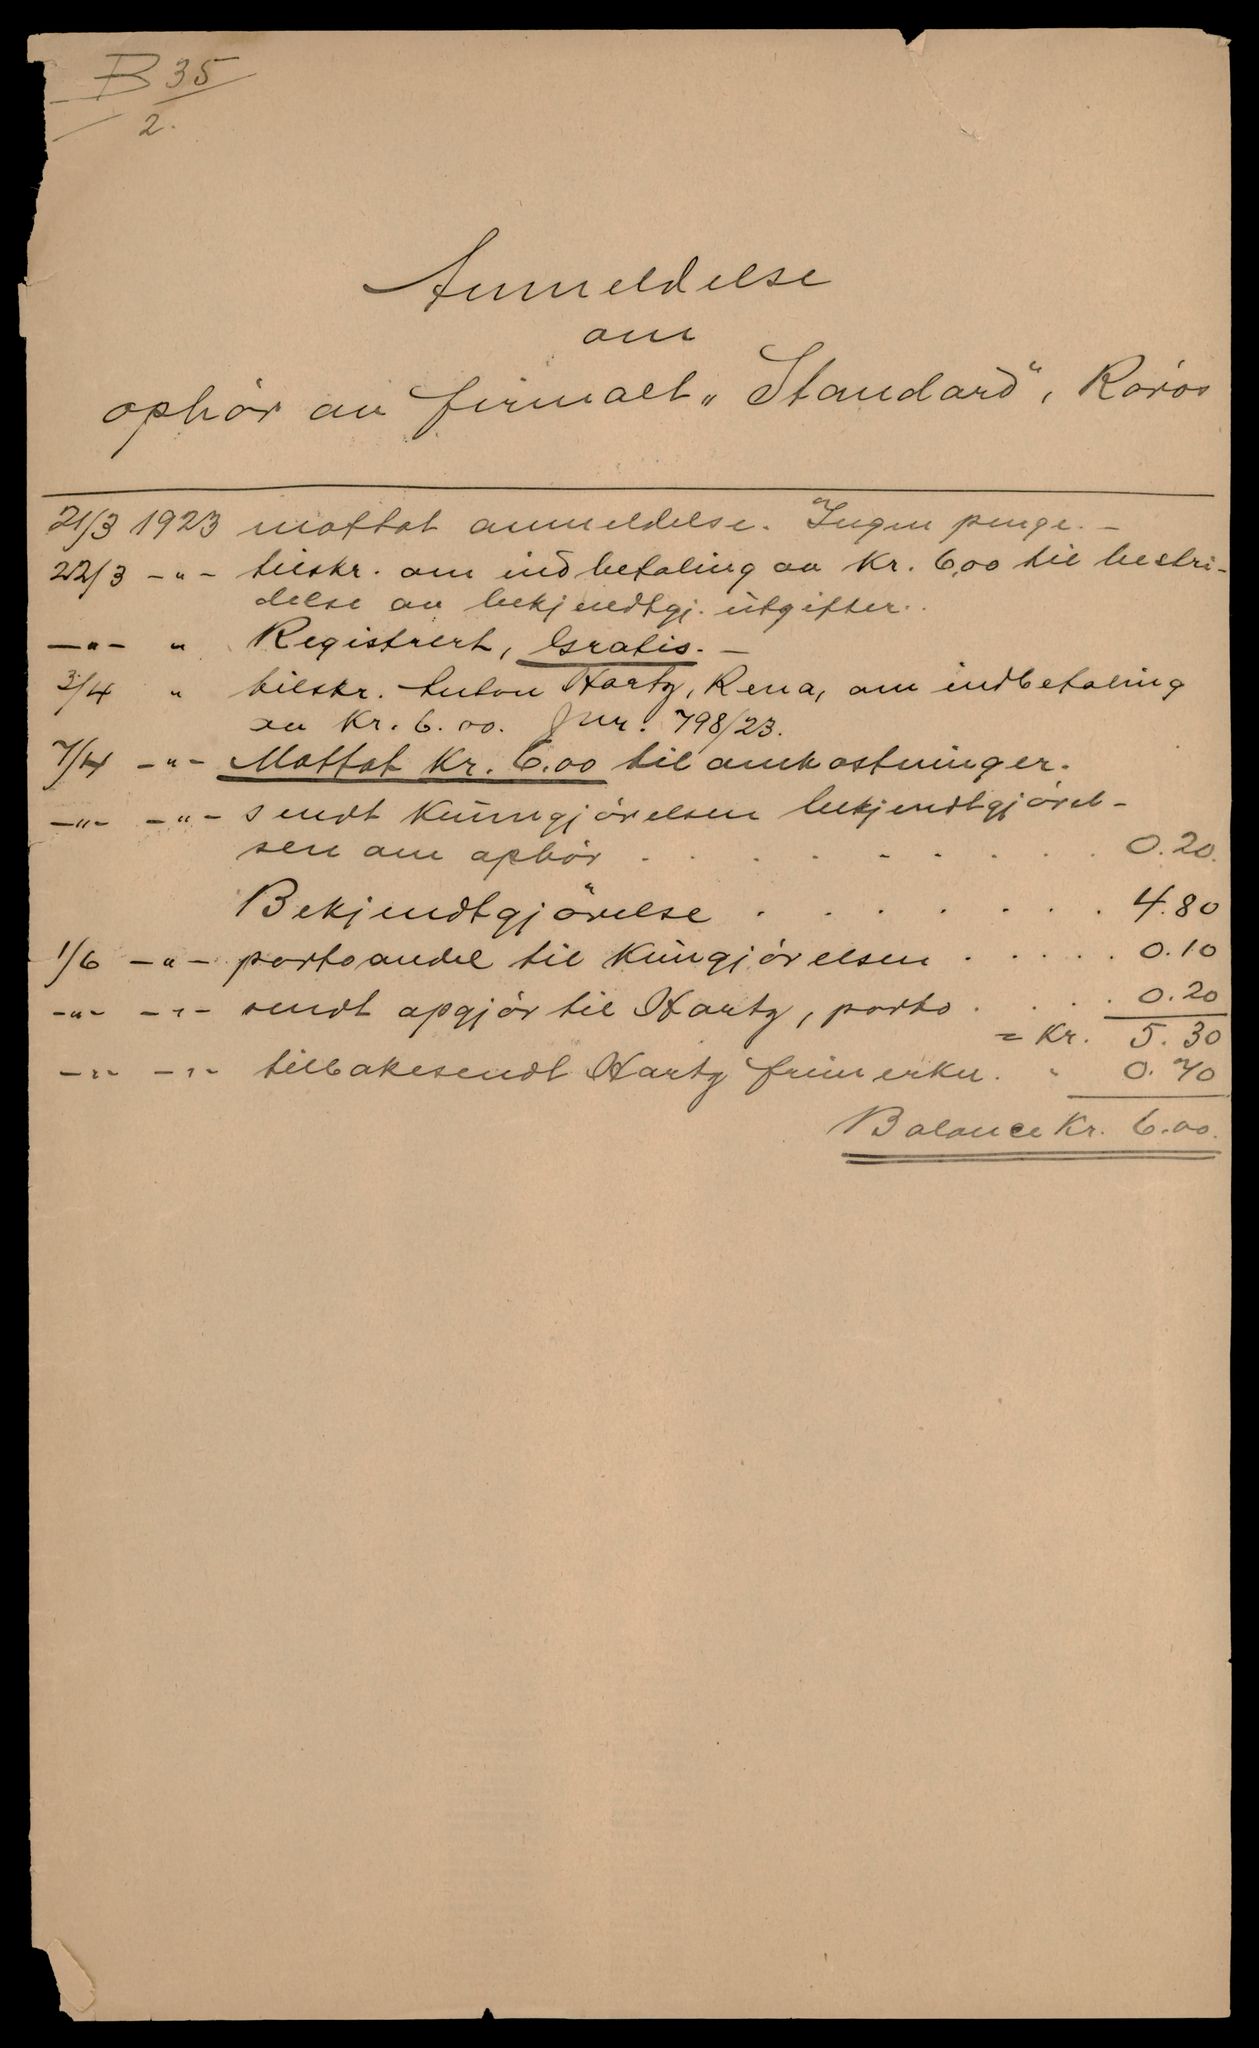 B 35
2.
Anmeldelse
om
ophör av firmaet „Standard“, Röros
21/3 1923 mottat anmeldelse. Ingen penge. –
22/3 –"– tilskr. om indbetaling av Kr. 6,00 til bestri-
delse av bekjendtgj. utgifter.
–"– " Registrert, Gratis. –
3/4 " tilskr. Anton Hartz, Rena, om indbetaling
av Kr. 6.00. Jnr. 798/23.
7/4 –"– Mottat Kr. 6.00 til omkostninger.
–"– –"– sendt Kungjörelsen bekjendtgjörel-
sen om ophör . . . . . . . . . 0.20.
Bekjendtgjörelse . . . . . . . 4.80
1/6 –"– portoandel til Kungjörelsen . . . . . 0.10
–"– –"– sendt opgjör til Hartz, porto . . . 0.20
= Kr. 5.30
–"– –"– tilbakesendt Hartz frimerker. " 0.70
Balance Kr. 6.00.